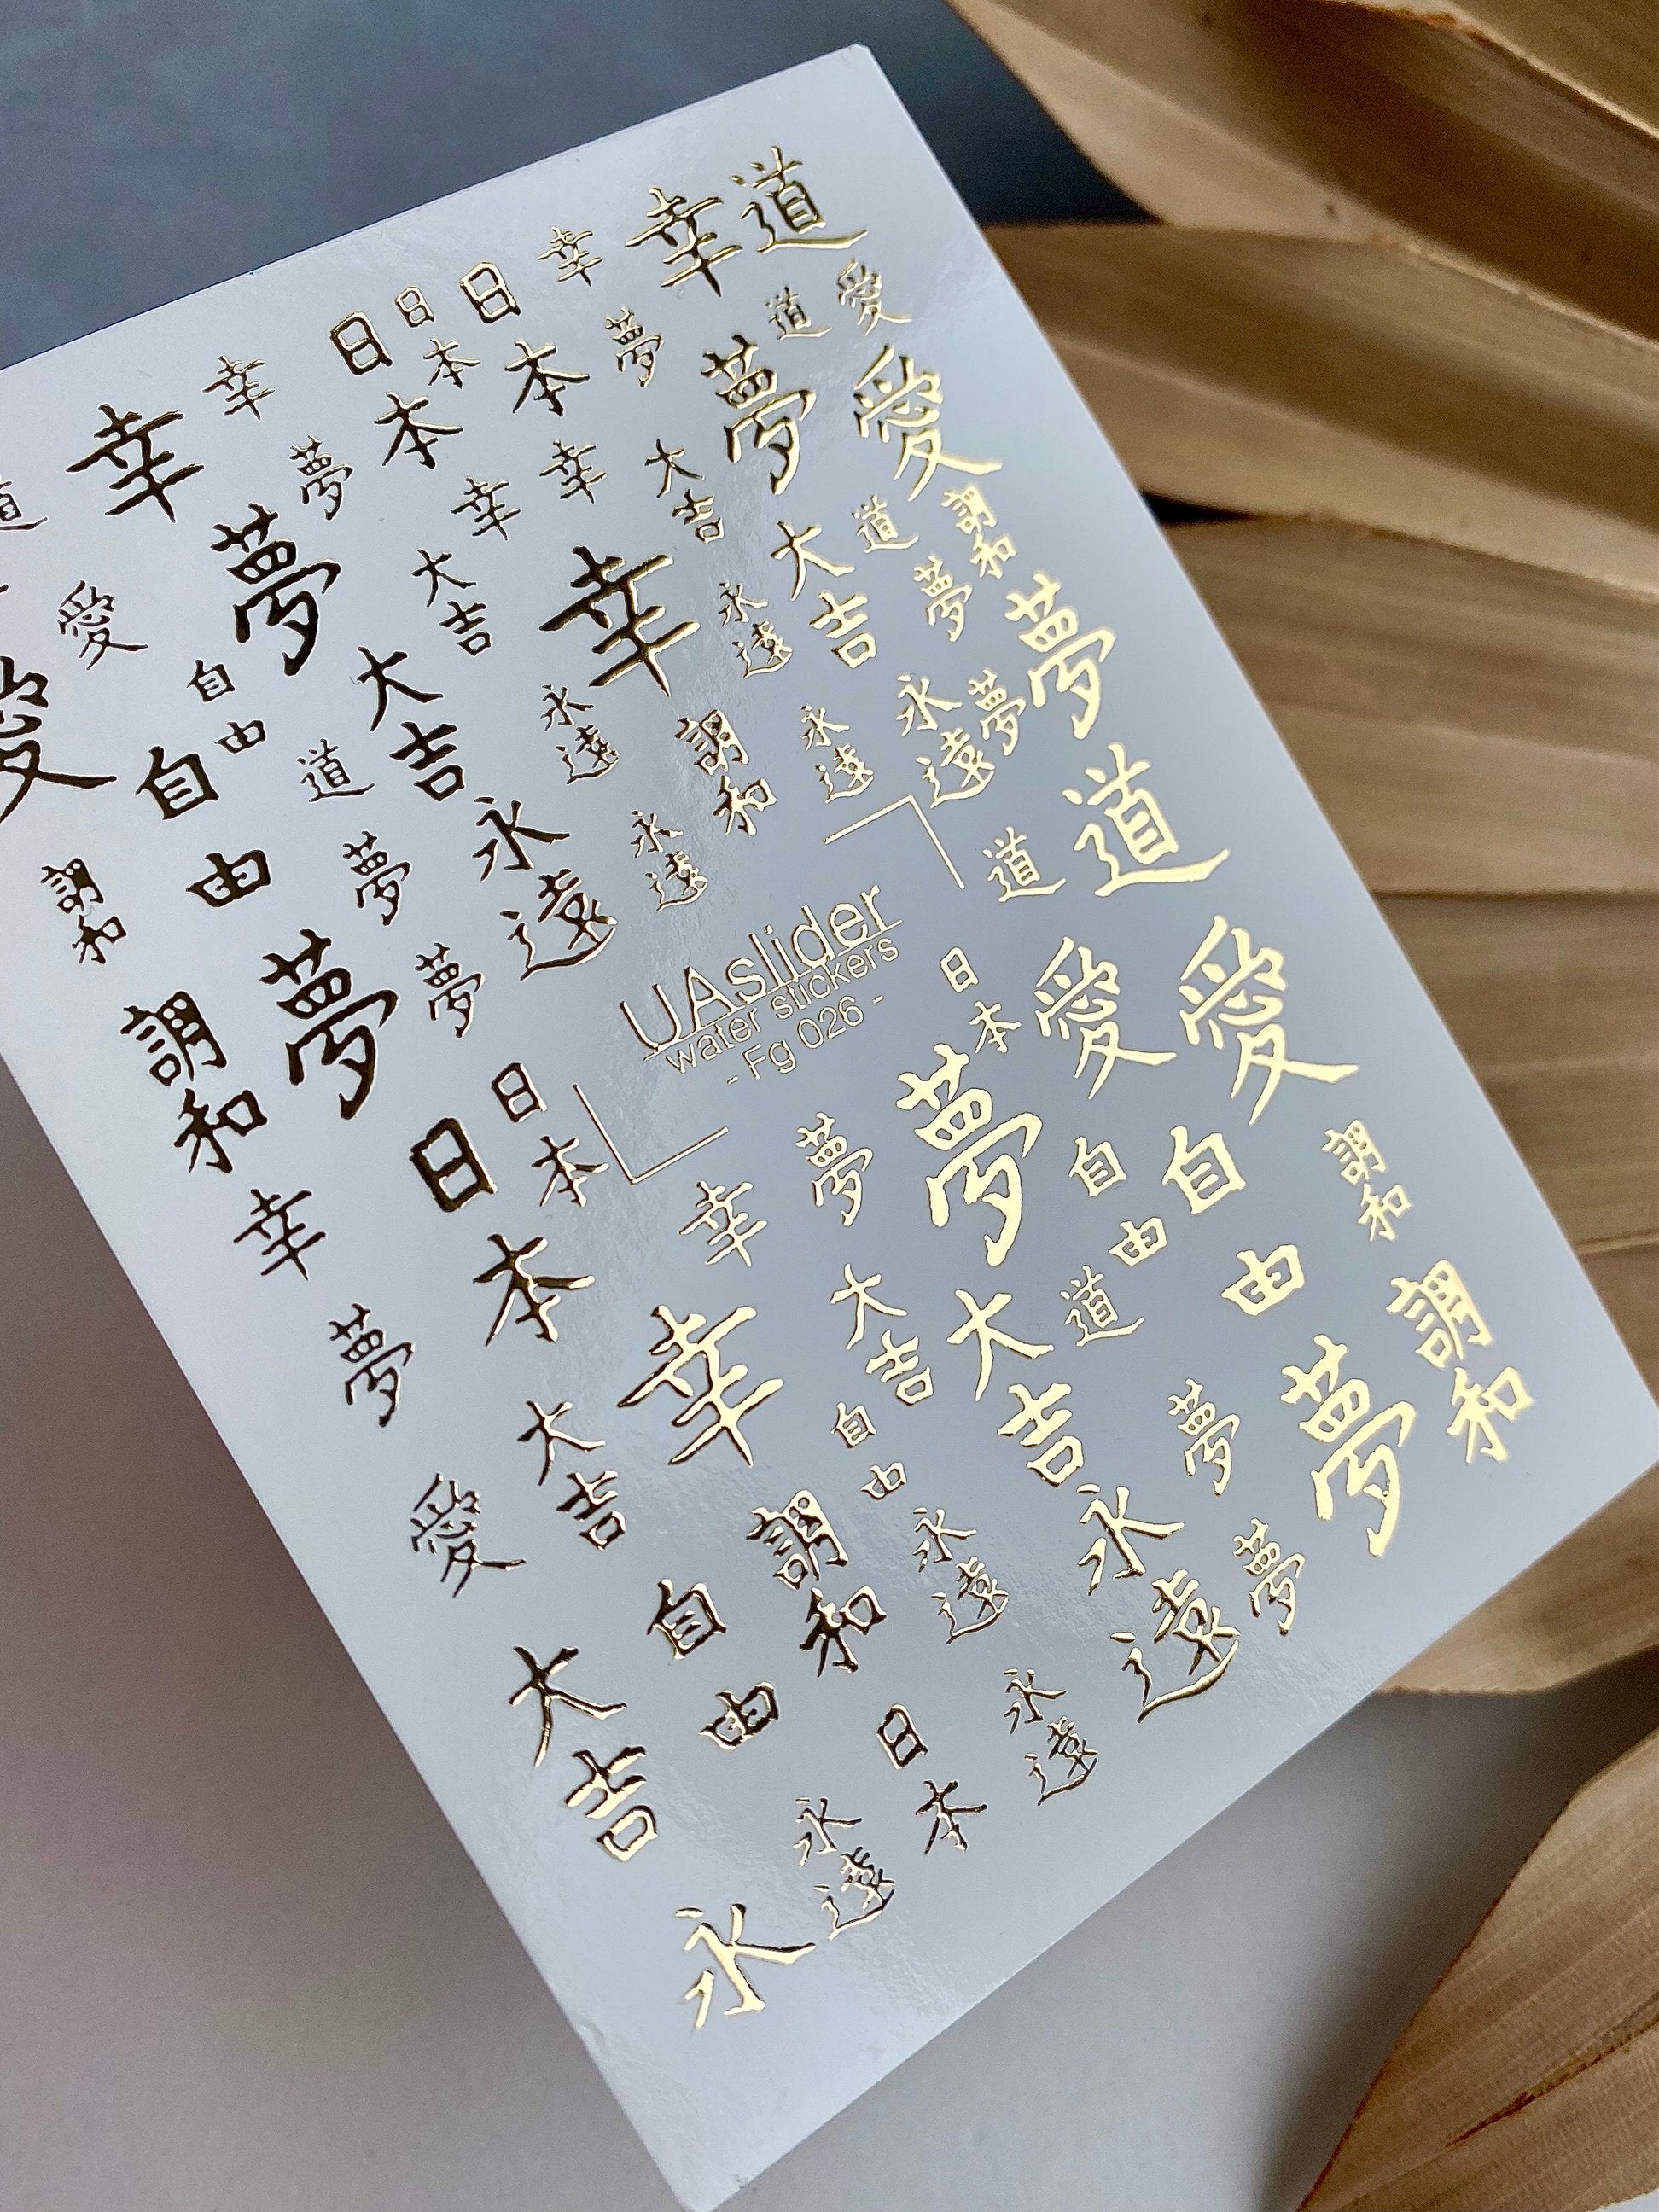 道
幸
幸
日本
日本
日本
幸
幸
道
愛
道
夢
愛
夢
大吉
幸
幸
夢
夢
愛
愛
調和
道
大吉
夢
永遠
幸
大吉
夢
夢
永遠
永遠
調和
永遠
大吉
自由
自由
道
道
道
永遠
永遠
夢
調和
UAslider
water stickers
- Fg 026 -
愛
愛
日本
夢
夢
調和
日本
日本
夢
夢
自由
自由
調和
幸
幸
大吉
大吉
道
調和
幸
夢
夢
夢
自由
大吉
愛
調和
永遠
永遠
夢
自由
大吉
日本
永遠
永遠
永